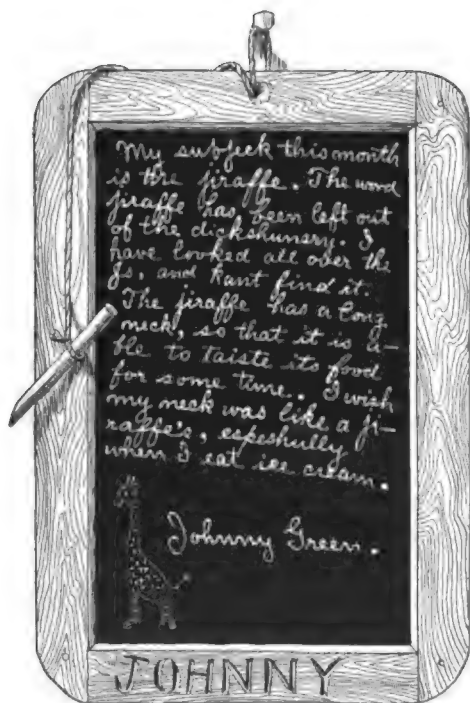 My subjeck this month
is the jiraffe. The word
jiraffe has been left out
of the dickshunary. I
have looked all over the
Js, and kant find it.
The jiraffe has a long
neck, so that it is a-
ble to taiste its food
for some time. I wish
my neck was like a ji-
raffe's, espeshully
when I eat ice cream.
Johnny Green.
JOHNNY